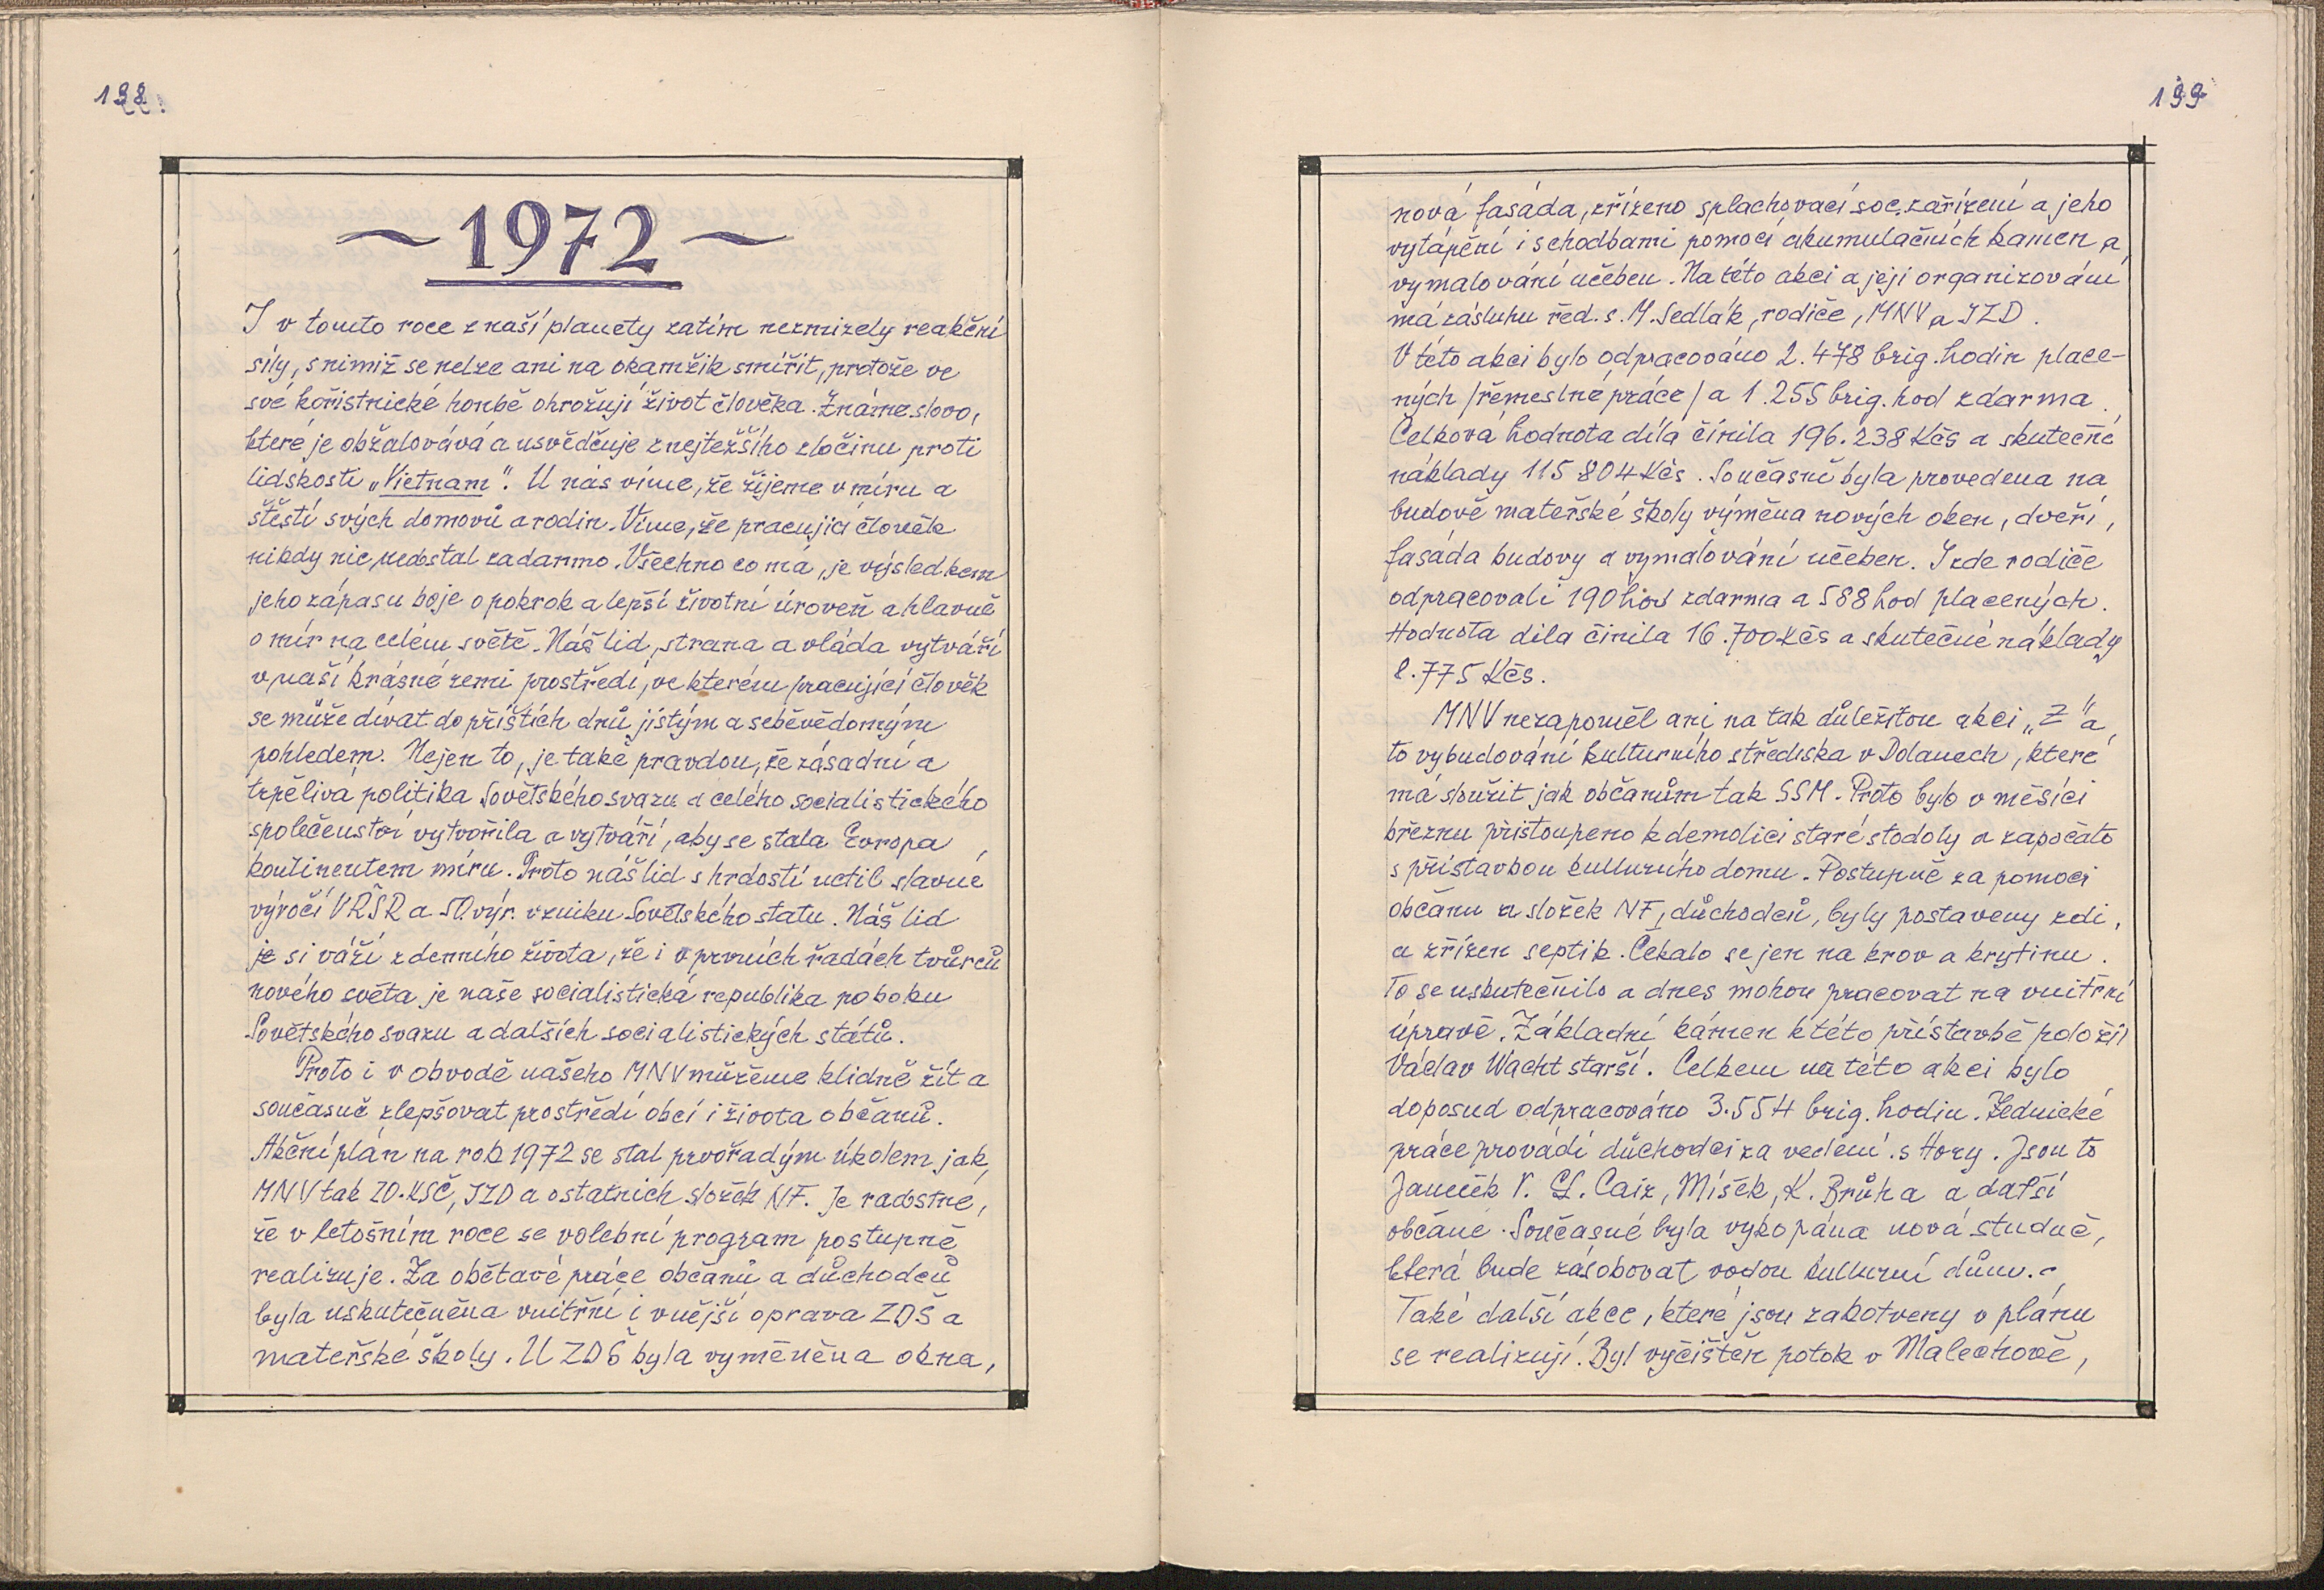 198.
~ 1972 ~
I v tomto roce z naší planety zatím nezmizely reakční
síly, s nimiž se nelze ani na okamžik smířit, protože ve
své kořistnické honbě ohrožují život člověka. Známe slovo,
které je obžalovává a usvědčuje z nejtěžšího zločinu proti
lidskosti „Vietnam“. U nás víme, že žijeme v míru a
štěstí svých domovů a rodin. Víme, že pracující člověk
nikdy nic nedostal zadarmo. Všechno co má, je výsledkem
jeho zápasu boje o pokrok a lepší životní úroveň a hlavně
o mír na celém světě. Náš lid, strana a vláda vytváří
v naší krásné zemi prostředí, ve kterém pracující člověk
se může dívat do příštích dnů jistým a seběvědomým
pohledem. Nejen to, je také pravdou, že zásadní a
trpělivá politika Sovětského svazu a celého socialistického
společenství vytvořila a vytváří, aby se stala Evropa
kontinentem míru. Proto náš lid s hrdostí uctil slavné
výročí VŘSR a 50 výr. vzniku Sovětského statu. Náš lid
je si váží z denního života, že i v prvních řadách tvůrců
nového světa je naše socialistická republika po boku
Sovětského svazu a dalších socialistických států.
Proto i v obvodě našeho MNV můžeme klidně žít a
současně zlepšovat prostředí obcí i života občanů.
Akční plán na rok 1972 se stal prvořadým úkolem jak,
MNV tak ZO.KSČ, JZD a ostatních složek NF. Je radostné,
že v letošním roce se volební program postupně
realizuje. Za obětavé práce občanů a důchodců
byla uskutečněna vnitřní i vnější oprava ZDŠ a
mateřské školy. U ZDŠ byla vyměněna okna,
199
nová fasáda, zřízeno splachovací soc. zařízení a jeho
vytápění i s chodbami pomocí akumulačních kamen a
vymalování učeben. Na této akci a její organizování
má zásluhu řed. s. M. Sedlák, rodiče, MNV a JZD.
V této akci bylo odpracováno 2.478 brig. hodin place-
ných /řemeslné práce/ a 1.255 brig. hod zdarma.
Celková hodnota díla činila 196.238 Kčs a skutečné
náklady 115 804 Kčs. Současně byla provedena na
budově mateřské školy výměna nových oken, dveří,
fasáda budovy a vymalování učeben. I zde rodiče
odpracovali 190 hod zdarma a 588 hod placených.
Hodnota díla činila 16.700 Kčs a skutečné náklady
8.775 Kčs.
MNV nezapoměl ani na tak důležitou akci „Z“ a
to vybudování kulturního střediska v Dolanech, které
má sloužit jak občanům tak SSM. Proto bylo v měsíci
březnu přistoupeno k demolici staré stodoly a započato
s přístavbou kulturního domu. Postupně za pomoci
občanu a složek NF, důchodců, byly postaveny zdi,
a zřízen septik. Čekalo se jen na krov a krytinu.
To se uskutečnilo a dnes mohou pracovat na vnitřní
úpravě. Základní kámen k této přístavbě položil
Václav Wacht starší. Celkem na této akci bylo
doposud odpracováno 3.554 brig. hodin. Zednické
práce provádí důchodci za vedení s. Hory. Jsou to
Janeček V. Caiz, Míšek, K. Brůha a další
občané. Současně byla vykopána nová studně,
která bude zásobovat vodou kulturní dům.
Také další akce, které jsou zakotveny v plánu
se realizují. Byl vyčištěn potok v Malechově,